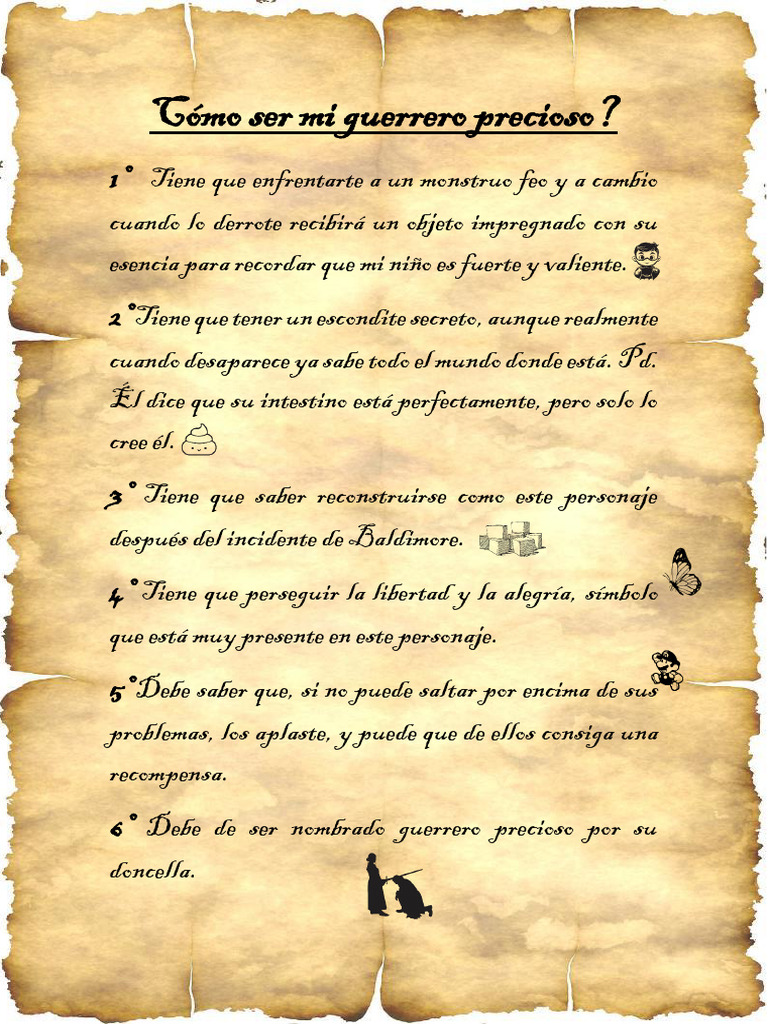 Cómo ser mi guerrero precioso?
1° Tiene que enfrentarte a un monstruo feo y a cambio
cuando lo derrote recibirá un objeto impregnado con su
esencia para recordar que mi niño es fuerte y valiente.
2°Tiene que tener un escondite secreto, aunque realmente
cuando desaparece ya sabe todo el mundo donde está. Pd.
Él dice que su intestino está perfectamente, pero solo lo
cree él.
3° Tiene que saber reconstruirse como este personaje
después del incidente de Baldimore.
4°Tiene que perseguir la libertad y la alegría, símbolo
que está muy presente en este personaje.
5°Debe saber que, si no puede saltar por encima de sus
problemas, los aplaste, y puede que de ellos consiga una
recompensa.
6° Debe de ser nombrado guerrero precioso por su
doncella.